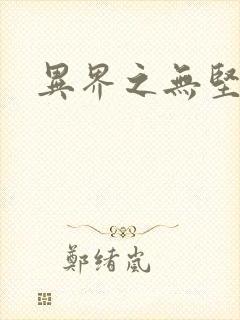 異界之無堅
鄭緒嵐